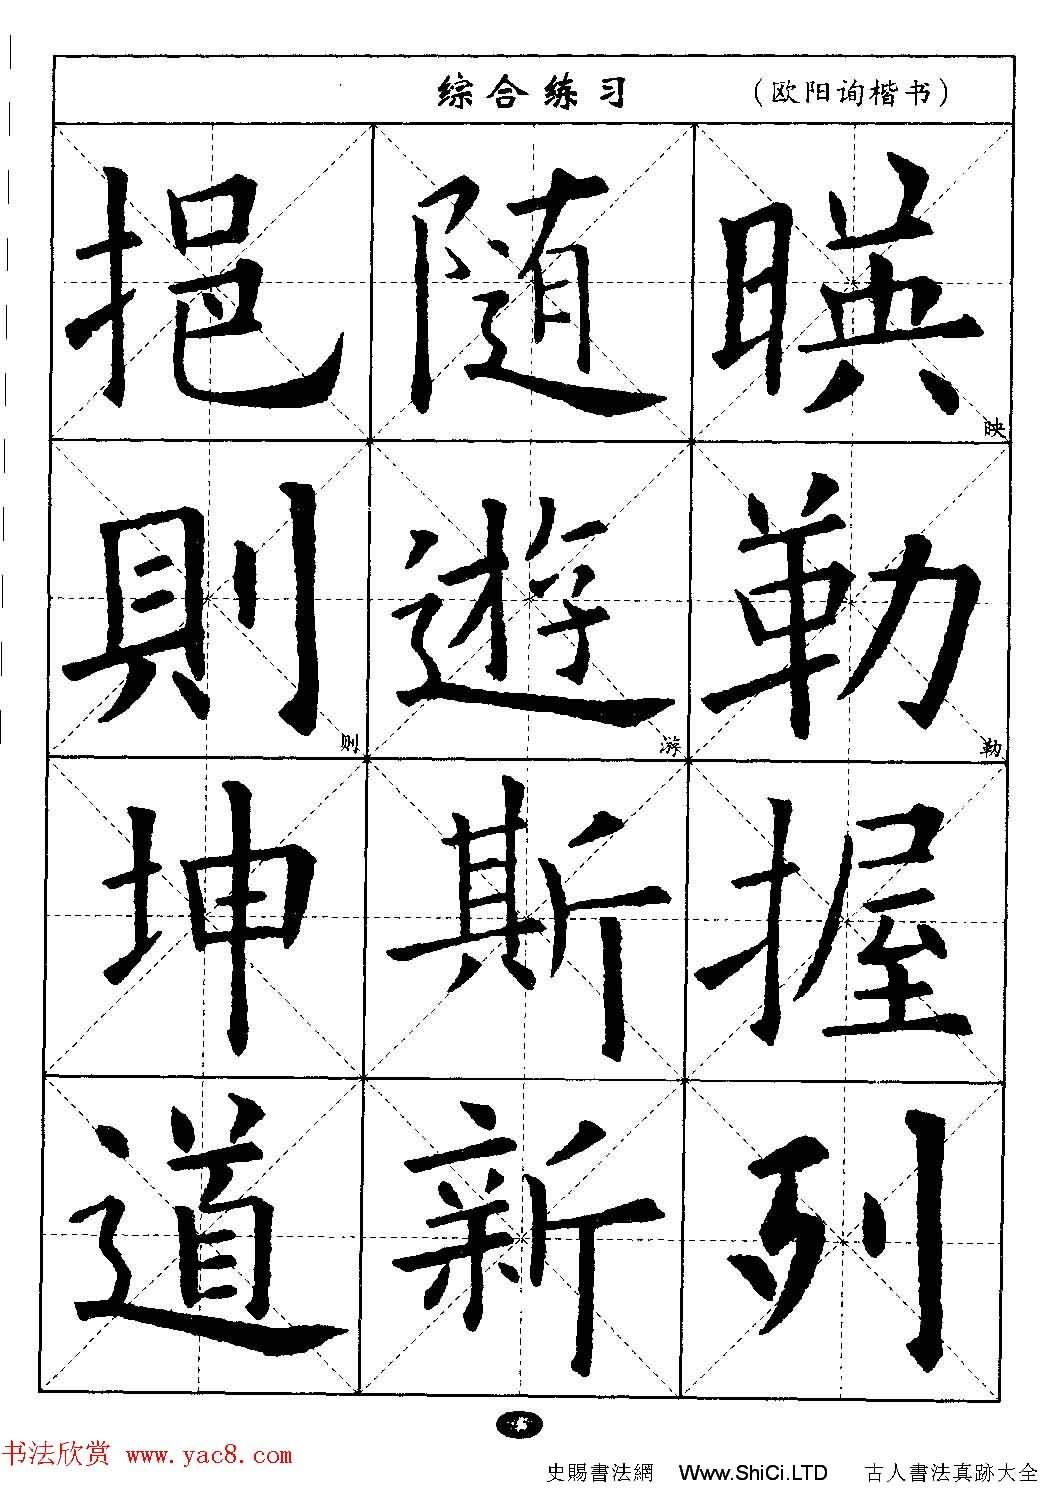 综合练习 （欧阳询楷书）
挹 随 暎
映
則 遊 勒
则 游 勒
坤 斯 握
道 新 列
书法欣赏 www.yac8.com
史賜書法網 Www.ShiCi.LTD 古人書法真跡大全